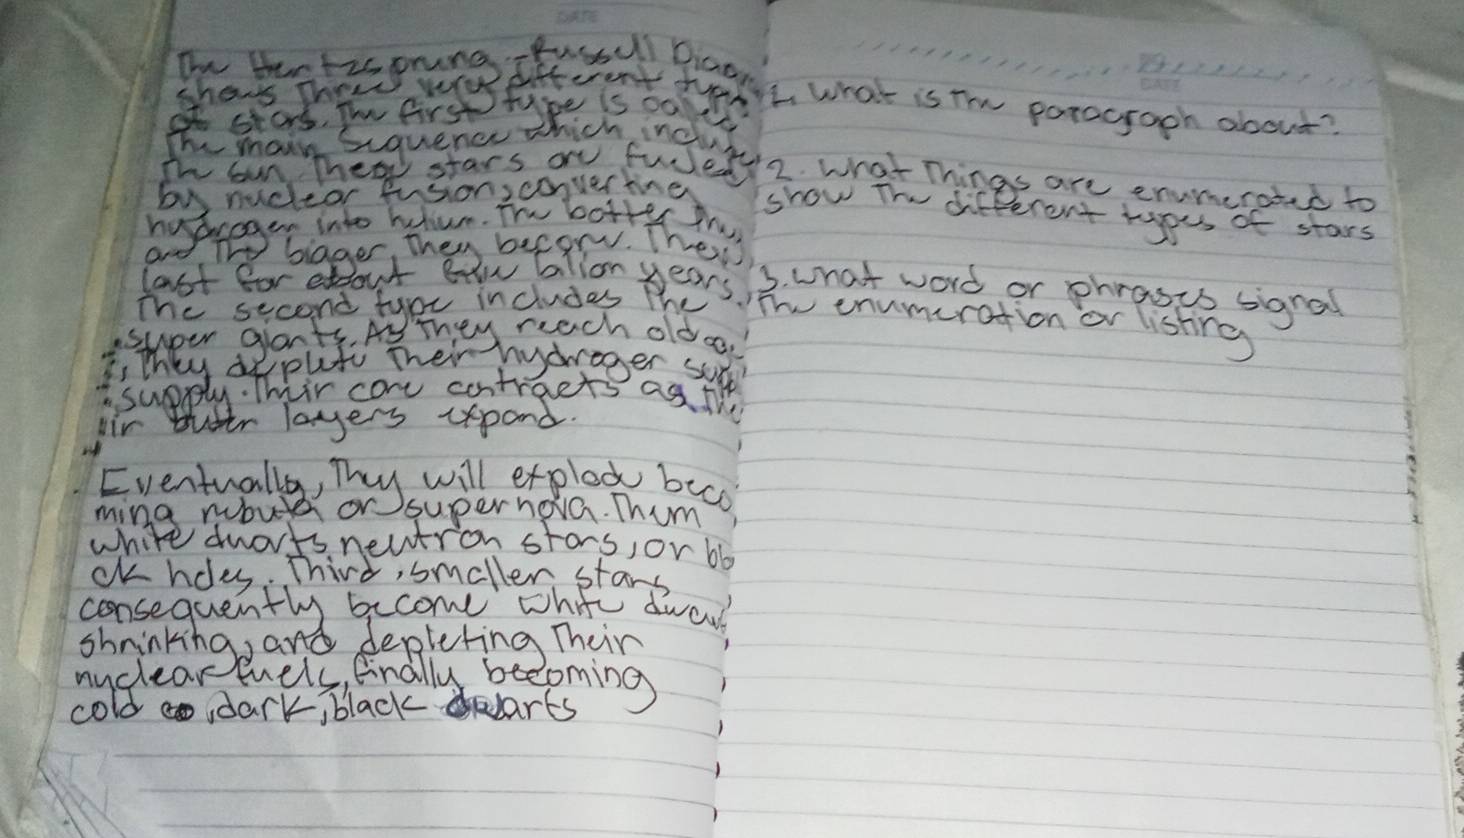 The Hertzsprung-Russell Diagr
shows Three very different types
of stars. The first type is called
The main Sequence which include
The sun. These stars are fueled
by nuclear fusions, converting
hydrogen into helium. The hotter they
are The bigger They become. These
last for about billion years.
The second type includes The
super giants. As They reach old ag
They deplete Their hydroger supp
supply. Their core contracts as The
ir outer layers expand.
Eventually, They will explode beco
ming nebula or supernova. Them
white dwarfs neutron stars, or bla
ck holes. Third, smaller stars
consequently become white dwarf
shrinking, and depleting Their
nuclear fuels, finally becoming
cold , dark, black dwarfs
1. What is The paragraph about?
2. What Things are enumerated to
show The different types of stars
3. What word or phrases signal
The enumeration or listing